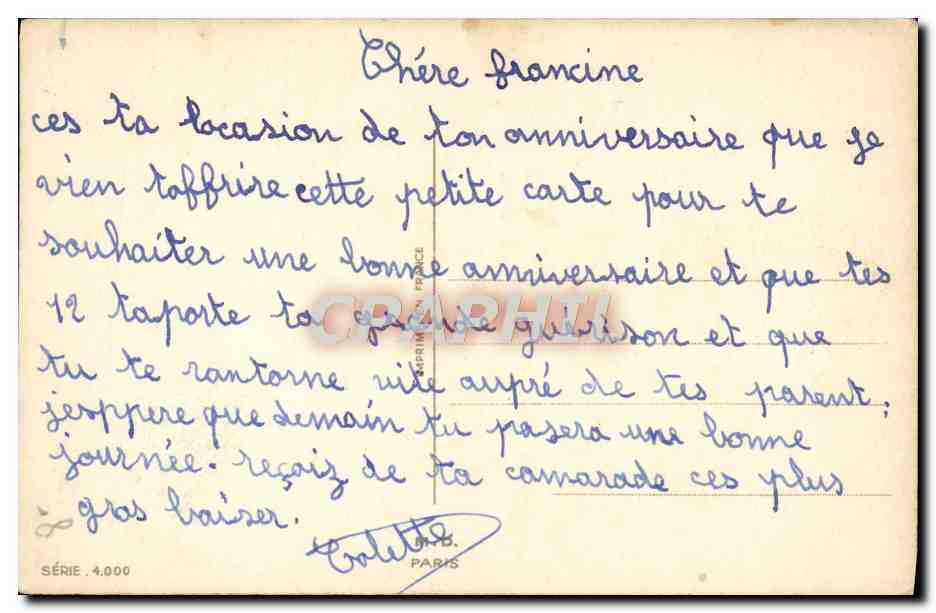 Chére francine
ces ta locasion de ton anniversaire que je
vien toffrire cette petite carte pour te
souhaiter une bonne anniversaire et que tes
12 taporte ta grande guérison et que
tu te rantorne vite aupré de tes parent.
jesppere que demain tu pasera une bonne
journée. reçoiz de ta camarade ces plus
gros baiser.
Colette
IMPRIMÉ EN FRANCE
CPAPHIL
M.D.
PARIS
SÉRIE . 4.000